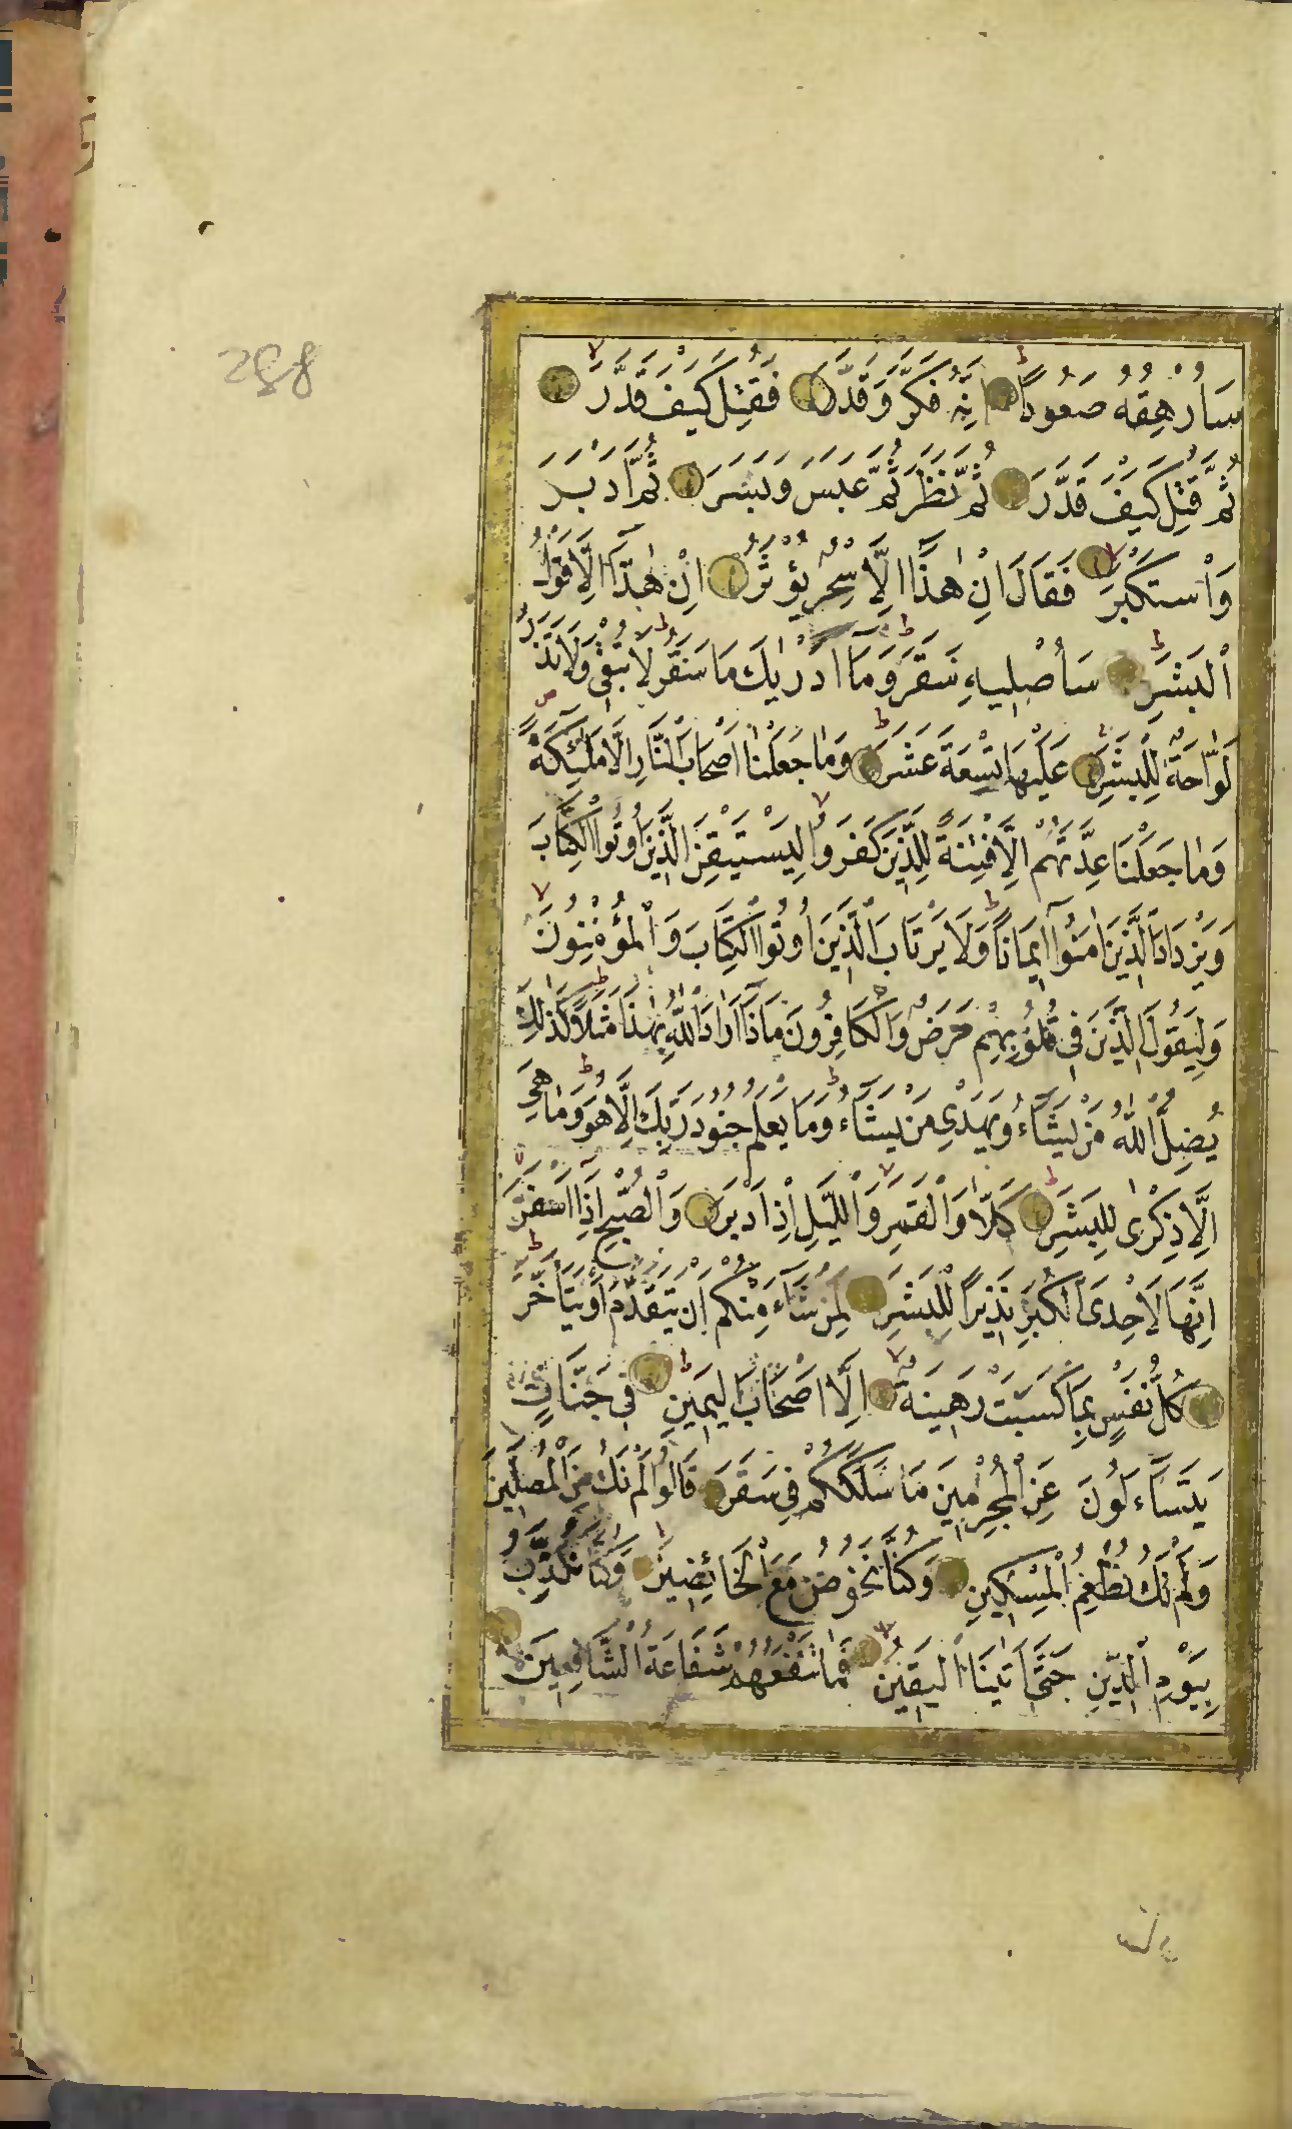 288
سَاُرْهِقُهُ صَعُودًا اِنَّهُ فَكَّرَ وَقَدَّرَ فَقُتِلَ كَيْفَ قَدَّرَ
ثُمَّ قُتِلَ كَيْفَ قَدَّرَ ثُمَّ نَظَرَ ثُمَّ عَبَسَ وَبَسَرَ ثُمَّ اَدْبَرَ
وَاسْتَكْبَرَ فَقَالَ اِنْ هٰذَا اِلَّا سِحْرٌ يُؤْثَرُ اِنْ هٰذَا اِلَّا قَوْلُ
الْبَشَرِ سَاُصْلِيهِ سَقَرَ وَمَا اَدْرٰيكَ مَا سَقَرُ لَا تُبْقِى وَلَا تَذَرُ
لَوَّاحَةٌ لِلْبَشَرِ عَلَيْهَا تِسْعَةَ عَشَرَ وَمَا جَعَلْنَا اَصْحَابَ النَّارِ اِلَّا مَلٰئِكَةً
وَمَا جَعَلْنَا عِدَّتَهُمْ اِلَّا فِتْنَةً لِلَّذِينَ كَفَرُوا لِيَسْتَيْقِنَ الَّذِينَ اُوتُوا الْكِتَابَ
وَيَزْدَادَ الَّذِينَ اٰمَنُوا اِيمَانًا وَلَا يَرْتَابَ الَّذِينَ اُوتُوا الْكِتَابَ وَالْمُؤْمِنُونَ
وَلِيَقُولَ الَّذِينَ فِى قُلُوبِهِمْ مَرَضٌ وَالْكَافِرُونَ مَاذَا اَرَادَ اللّٰهُ بِهٰذَا مَثَلًا كَذٰلِكَ
يُضِلُّ اللّٰهُ مَنْ يَشَاءُ وَيَهْدِى مَنْ يَشَاءُ وَمَا يَعْلَمُ جُنُودَ رَبِّكَ اِلَّا هُوَ وَمَا هِىَ
اِلَّا ذِكْرٰى لِلْبَشَرِ كَلَّا وَالْقَمَرِ وَالَّيْلِ اِذْ اَدْبَرَ وَالصُّبْحِ اِذَا اَسْفَرَ
اِنَّهَا لَاِحْدَى الْكُبَرِ نَذِيرًا لِلْبَشَرِ لِمَنْ شَاءَ مِنْكُمْ اَنْ يَتَقَدَّمَ اَوْ يَتَاَخَّرَ
كُلُّ نَفْسٍ بِمَا كَسَبَتْ رَهِينَةٌ اِلَّا اَصْحَابَ الْيَمِينِ فِى جَنَّاتٍ
يَتَسَاءَلُونَ عَنِ الْمُجْرِمِينَ مَا سَلَكَكُمْ فِى سَقَرَ قَالُوا لَمْ نَكُ مِنَ الْمُصَلِّينَ
وَلَمْ نَكُ نُطْعِمُ الْمِسْكِينَ وَكُنَّا نَخُوضُ مَعَ الْخَائِضِينَ وَكُنَّا نُكَذِّبُ
بِيَوْمِ الدِّينِ حَتّٰى اَتٰينَا الْيَقِينُ فَمَا تَنْفَعُهُمْ شَفَاعَةُ الشَّافِعِينَ